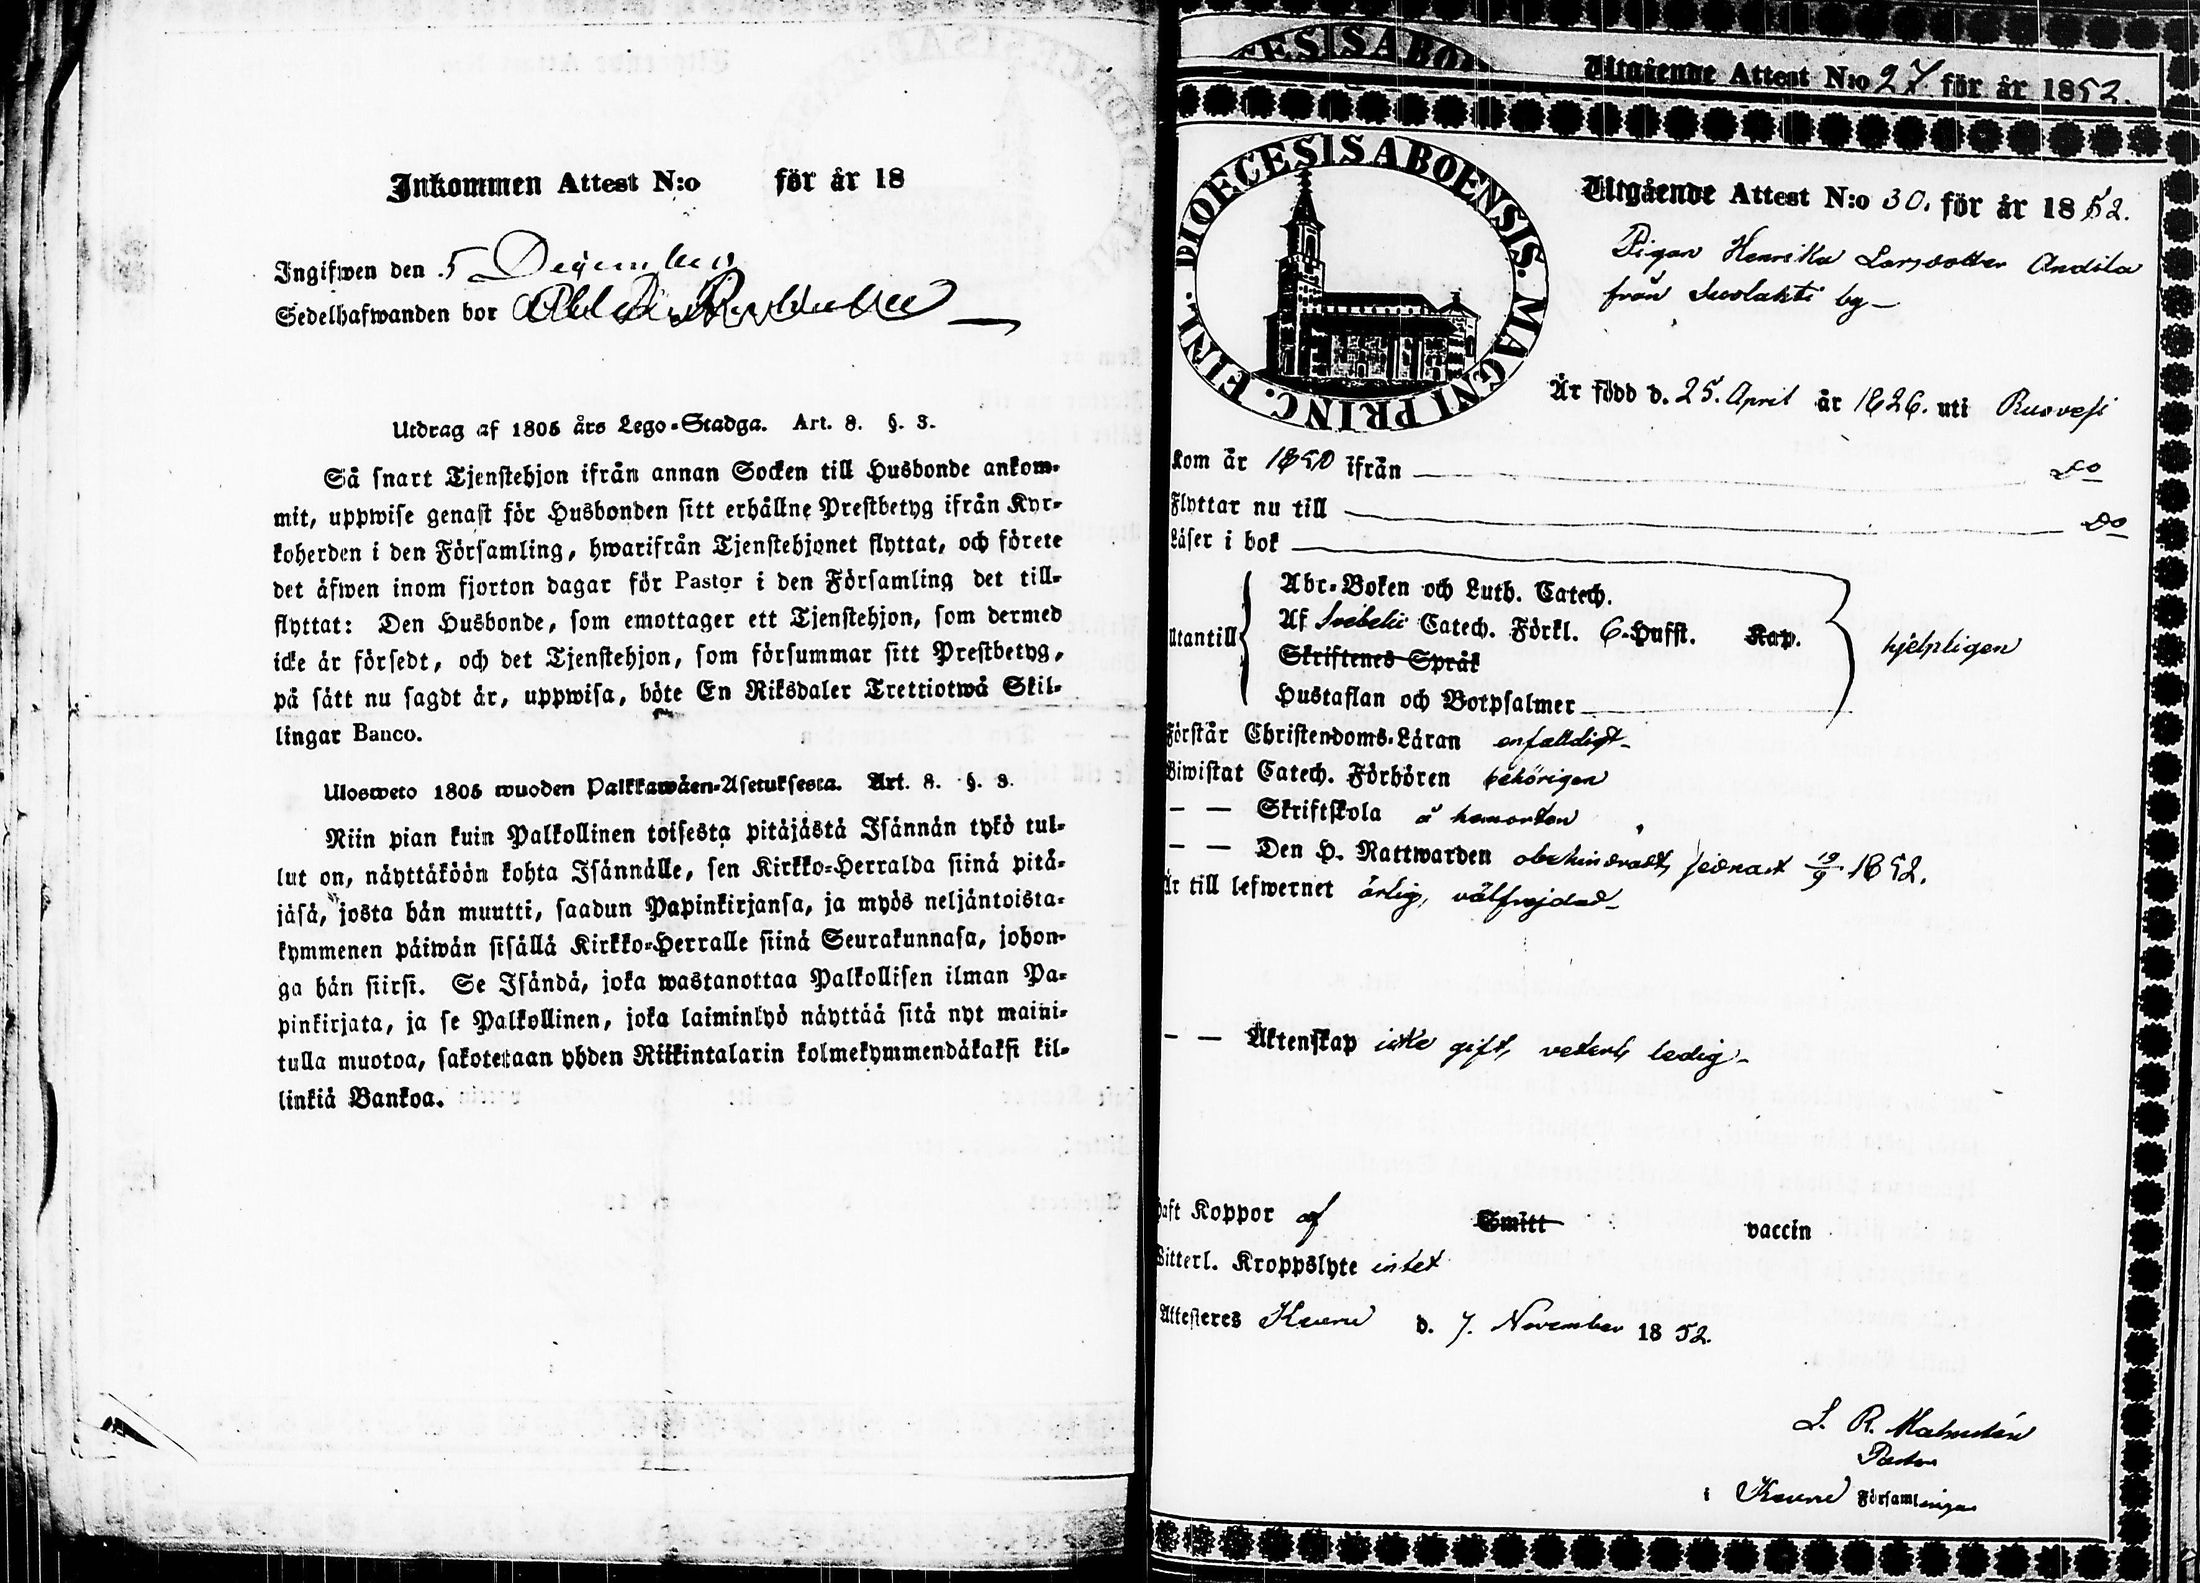 Inkommen Attest N:o för år 18
Ingifwen den 5 December
Sedelhafwanden bor
Utdrag af 1805 års Lego-Stadga. Art. 8. §. 3.
Så snart Tjenstehjon ifrån annan Socken till Husbonde ankom-
mit, uppwise genast för Husbonden sitt erhållne Prestbetyg ifrån Kyr-
koherden i den Församling, hwarifrån Tjenstehjonet flyttat, och förete
det äfwen inom fjorton dagar för Pastor i den Församling det till-
flyttat: Den Husbonde, som emottager ett Tjenstehjon, som dermed
icke är försedt, och det Tjenstehjon, som försummar sitt Prestbetyg,
på sätt nu sagdt är, uppwisa, böte En Riksdaler Trettiotwå Skil-
lingar Banco.
Ulosweto 1805 wuoden Palkkawäen-Asetuksesta. Art. 8. §. 3.
Niin pian kuin Palkollinen toisesta pitäjästä Isännän tykö tul-
lut on, näyttäköön kohta Isännälle, sen Kirkko-Herralda siinä pitä-
jäsä, josta hän muutti, saadun Papinkirjansa, ja myös neljäntoista-
kymmenen päiwän sisällä Kirkko-Herralle siinä Seurakunnasa, johon-
ga hän siirsi. Se Isändä, joka wastanottaa Palkollisen ilman Pa-
pinkirjata, ja se Palkollinen, joka laiminlyö näyttää sitä nyt maini-
tulla muotoa, sakotetaan yhden Riikintalarin kolmekymmendäkaksi kil-
linkiä Bankoa.
ESIS ABO
Utgående Attest N:o 27 för år 1852.
DIOECESIS ABOENSIS. MAGNI PRINC. FINL.
Utgående Attest N:o 30. för år 1852.
Pigan Henrika Larsdotter Andila
från Suolakti by
Är född d. 25. April år 1826. uti Ruovesi
Kom år 1850 ifrån do
Flyttar nu till Do
Läser i bok
Utantill
Abc-Boken och Luth. Catech.
Af Svebelii Catech. Förkl. 6-Hufst. Kap.
Skriftenes Språk
Hustaflan och Botpsalmer
hjelpligen
Förstår Christendoms-Läran enfalldigt
Biwistat Catech. Förhören behörigen
— — Skriftskola å hemorten
— — Den H. Nattwarden obehindradt, sednast 19/9 1852.
Är till lefwernet ärlig, välfrejdad
— — Äktenskap icke gift, veterl. ledig
Haft Koppor af Smitt vaccin
Witterl. Kroppslyte intet
Attesteres Keuru d. 7. November 1852.
L. R. Malmstén
Pastor
i Keuru Församlingar